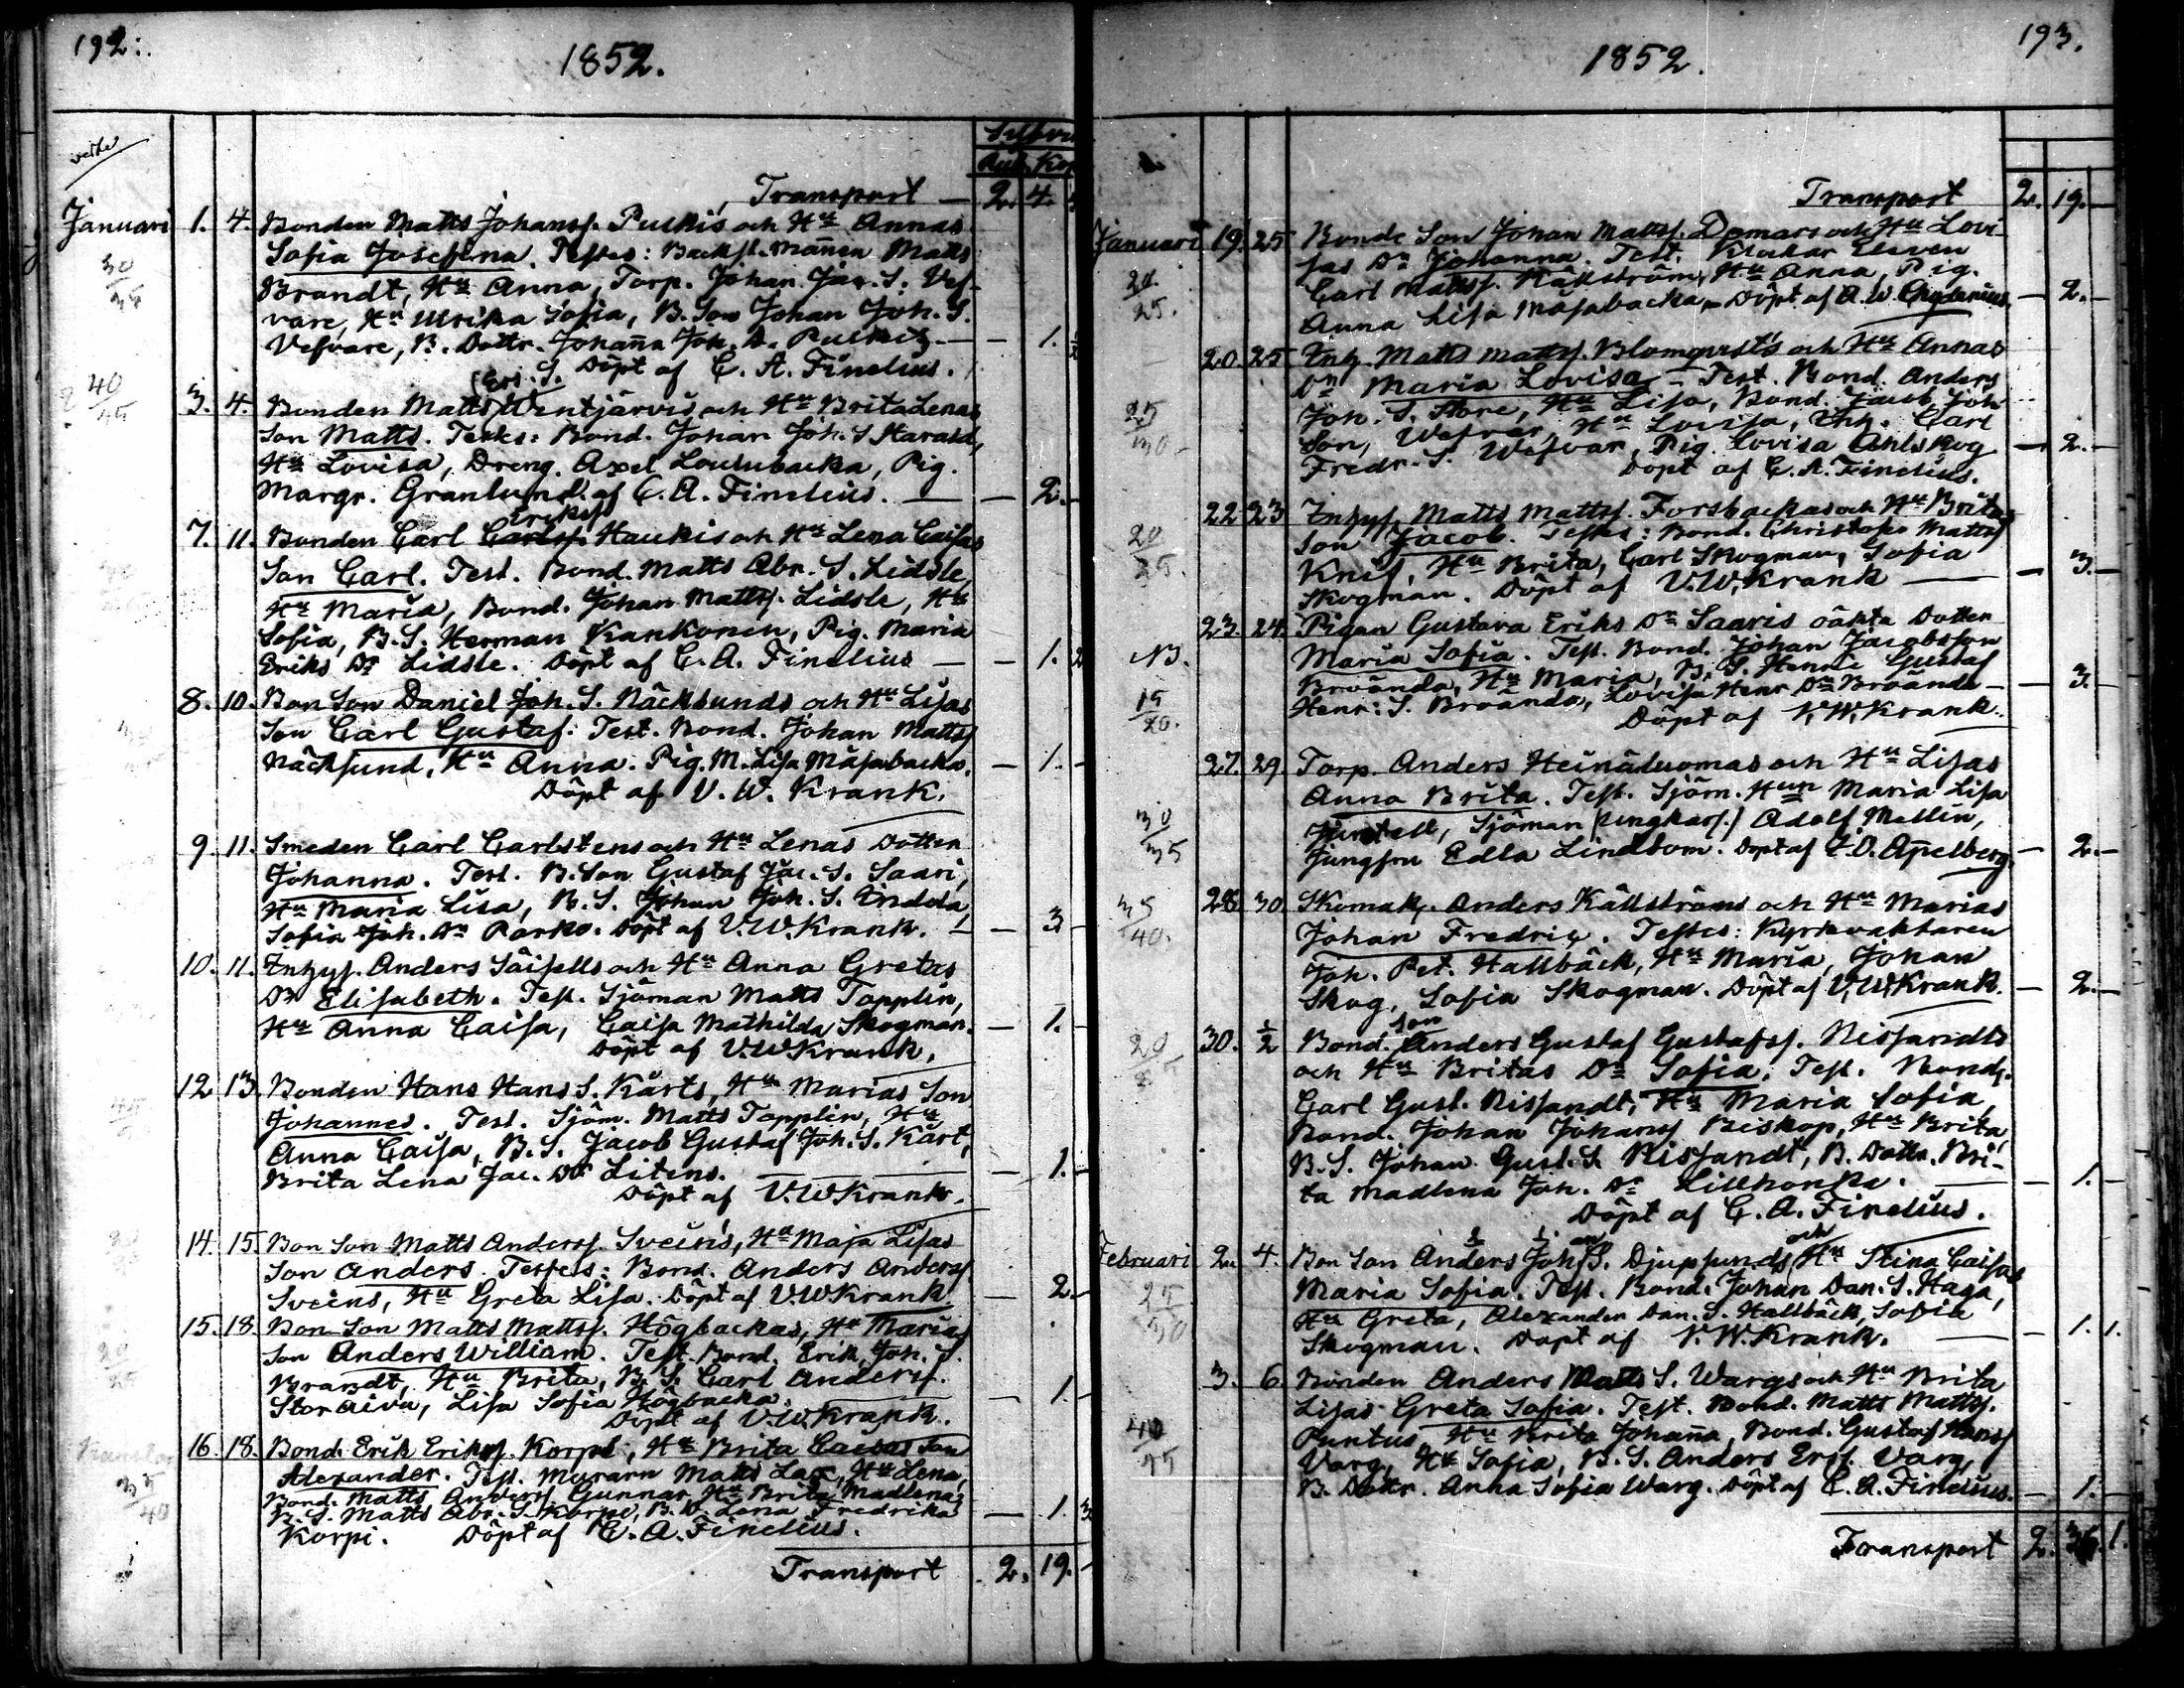 192.
1852.
Silfver
Rub. Kop
Transport — 2. 4.
Januari 1. 4. Bonden Matts Johanss. Pulkis och Hu Annas
30/35
Sofia Josefina. Testes: Backst.mannen Matts
Brandt, Hu Anna, Torp. Johan Jac. S. Vef-
vare, Hu Ulrika Sofia, B. Son Johan Joh. S.
Vefvare, B. Dottr. Johanna Joh. D. — 1.
Döpt af C. A. Finelius.
40/45
Eri. S.
3. 4. Bonden Matts Wentjärvis och Hu Brita Lenas
Son Matts. Testes: Bond. Johan Joh. S. Harald,
Hu Lovisa, Dreng. Axel Loulubacka, Pig.
Margr. Granlund. af C. A. Finelius. — 2.
Erikss.
7. 11. Bonden Carl Carlss. Haukis och Hu Lena Caisas
Son Carl. Test. Bond. Matts Abr. S. Lidsle,
Hu Maria, Bond. Johan Mattss. Lidsle, Hu
Sofia, B. S. Herman Kankonen, Pig. Maria
Eriks Dr Lidsle. Döpt af C. A. Finelius — 1.
8. 10. Bon Son Daniel Joh. S. Näcksunds och Hu Lisas
Son Carl Gustaf. Test. Bond. Johan Mattss
Näcksund, Hu Anna. Pig. M. Lisa Måsabacka. — 1.
Döpt af V. W. Krank.
9. 11. Smeden Carl Carlstens och Hu Lenas Dotter
Johanna. Test. B. Son Gustaf Jac. S. Saari,
Hu Maria Lisa, B. S. Johan Joh. S. Indola,
Sofia Joh. Dr Porko. Döpt af V. W. Krank. — 3
10. 11. Inhys. Anders Säisells och Hu Anna Gretas
Dr Elisabeth. Test. Sjöman Matts Topplin,
Hu Anna Caisa, Caisa Mathilda Skogman. — 1.
Döpt af V. W. Krank.
12 13. Bonden Hans Hans S. Kårts, Hu Marias Son
Johannes. Test. Sjöm. Matts Topplin, Hu
Anna Caisa, B. S. Jacob Gustaf Joh. S. Kårt,
Brita Lena Jac. Dr Litens. — 1.
Döpt af V. W. Krank.
14. 15. Bon Son Matts Anderss. Sveins, Hu Maja Lisas
Son Anders. Testes: Bond. Anders Anderss
Sveins, Hu Greta Lisa. Döpt af V. W. Krank — 2.
15. 18. Bon Son Matts Mattss. Högbackas, Hu Marias
Son Anders William. Test. Bond. Erik Joh. S.
Brandt, Hu Brita, B. S. Carl Anderss.
Storaiva, Lisa Sofia Högbacka. — 1.
Döpt af V. W. Krank.
16. 18. Bond. Erik Erikss. Korpi, Hu Brita Caisas Son
35/40
Alexander. Test. Muraren Matts Lax, Hu Lena,
Bond. Matts Anderss Gunnar, Hu Brita Madlena,
B. S. Matts Abr. S. Korpi, B. D. Lena Fredrika — 1.
Korpi. Döpt af C. A. Finelius.
Transport 2. 19.
193.
1852.
Transport 2. 19.
Januari 19. 25 Bonde Son Johan Mattss. Domars och Hu Lovi-
20/25.
sas Dr Johanna. Test. Klockar Eleven
Carl Mattss. Källström, Hu Anna, Pig.
Anna Lisa Måsabacka. Döpt af A. W. Chydenius. — 2.
20. 25 Inh. Matts Mattss. Blomqvist's och Hu Annas
25/30
Dr Maria Lovisa — Test. Bond. Anders
Joh. S. Store, Hu Lisa, Bond. Jacob Joh
Son, Wefvar, Hu Lovisa, Inh. Carl
Fredr. S. Wefvar, Pig. Lovisa Ahlskog — 2.
Döpt af C. A. Finelius.
22 23 Inhys. Matts Mattss. Forsbackas och Hu Britas
20/25.
Son Jacob. Testes: Bond. Christofer Mattss
Knif, Hu Brita, Carl Skogman, Sofia
Skogman. Döpt af V. W. Krank — 3.
23. 24. Pigan Gustava Eriks Dr Saaris oäkta Dotter
NB.
15/20.
Maria Sofia. Test. Bond. Johan Jacobsson
Broända, Hu Maria, B. S. Gustaf
Henr. S. Broända, Lovisa Henr. Dr Broända — 3.
Döpt af V. W. Krank.
27. 29 Torp. Anders Heinäluomas och Hu Lisas
30/35
Anna Brita. Test. Sjöm. Hun Maria Lisa
Juntell, Sjöman (ungkarl.) Adolf Mellin,
Jungfru Edla Lindbom. Döpt af J. O. Apelberg — 2.
28 30 Skomak. Anders Källströms och Hu Marias
35/40.
Johan Fredric. Testes: Kyrkvaktaren
Joh. Pet. Hallbäck, Hu Maria, Johan
Skog, Sofia Skogman. Döpt af V. W. Krank. — 2.
30. 1/2 Bond. son Anders Gustaf Gustafss. Nissandts
och Hu Britas Dr Sofia. Test. Bond.
Carl Gust. Nissandt, Hu Maria Sofia,
Bond. Johan Johanss Biskop, Hu Brita,
B. S. Johan Gust. S. Nissandt, B. Dottr. Bri-
ta Madlena Joh. Dr Lillhonka. — 1.
Döpt af C. A. Finelius.
Februari 2. 4. Bon Son Anders Joh. S. Djupsunds och Hu Stina Caisas
25/30
Maria Sofia. Test. Bond. Johan Dan. S. Haga,
Hu Greta, Alexander Dan. S. Hallbäck, Sofia
Skogman. Döpt af V. W. Krank. — 1. 1.
3. 6 Bonden Anders Matts S. Wargs och Hu Brita
Lisas Greta Sofia. Test. Bond. Matts Mattss.
Puntus, Hu Brita Johanna, Bond. Gustaf Hanss
Varg, Hu Sofia, B. S. Anders Erss. Varg,
B. Dottr. Anna Sofia Warg. Döpt af C. A. Finelius. — 1.
Transport 2. 36. 1.